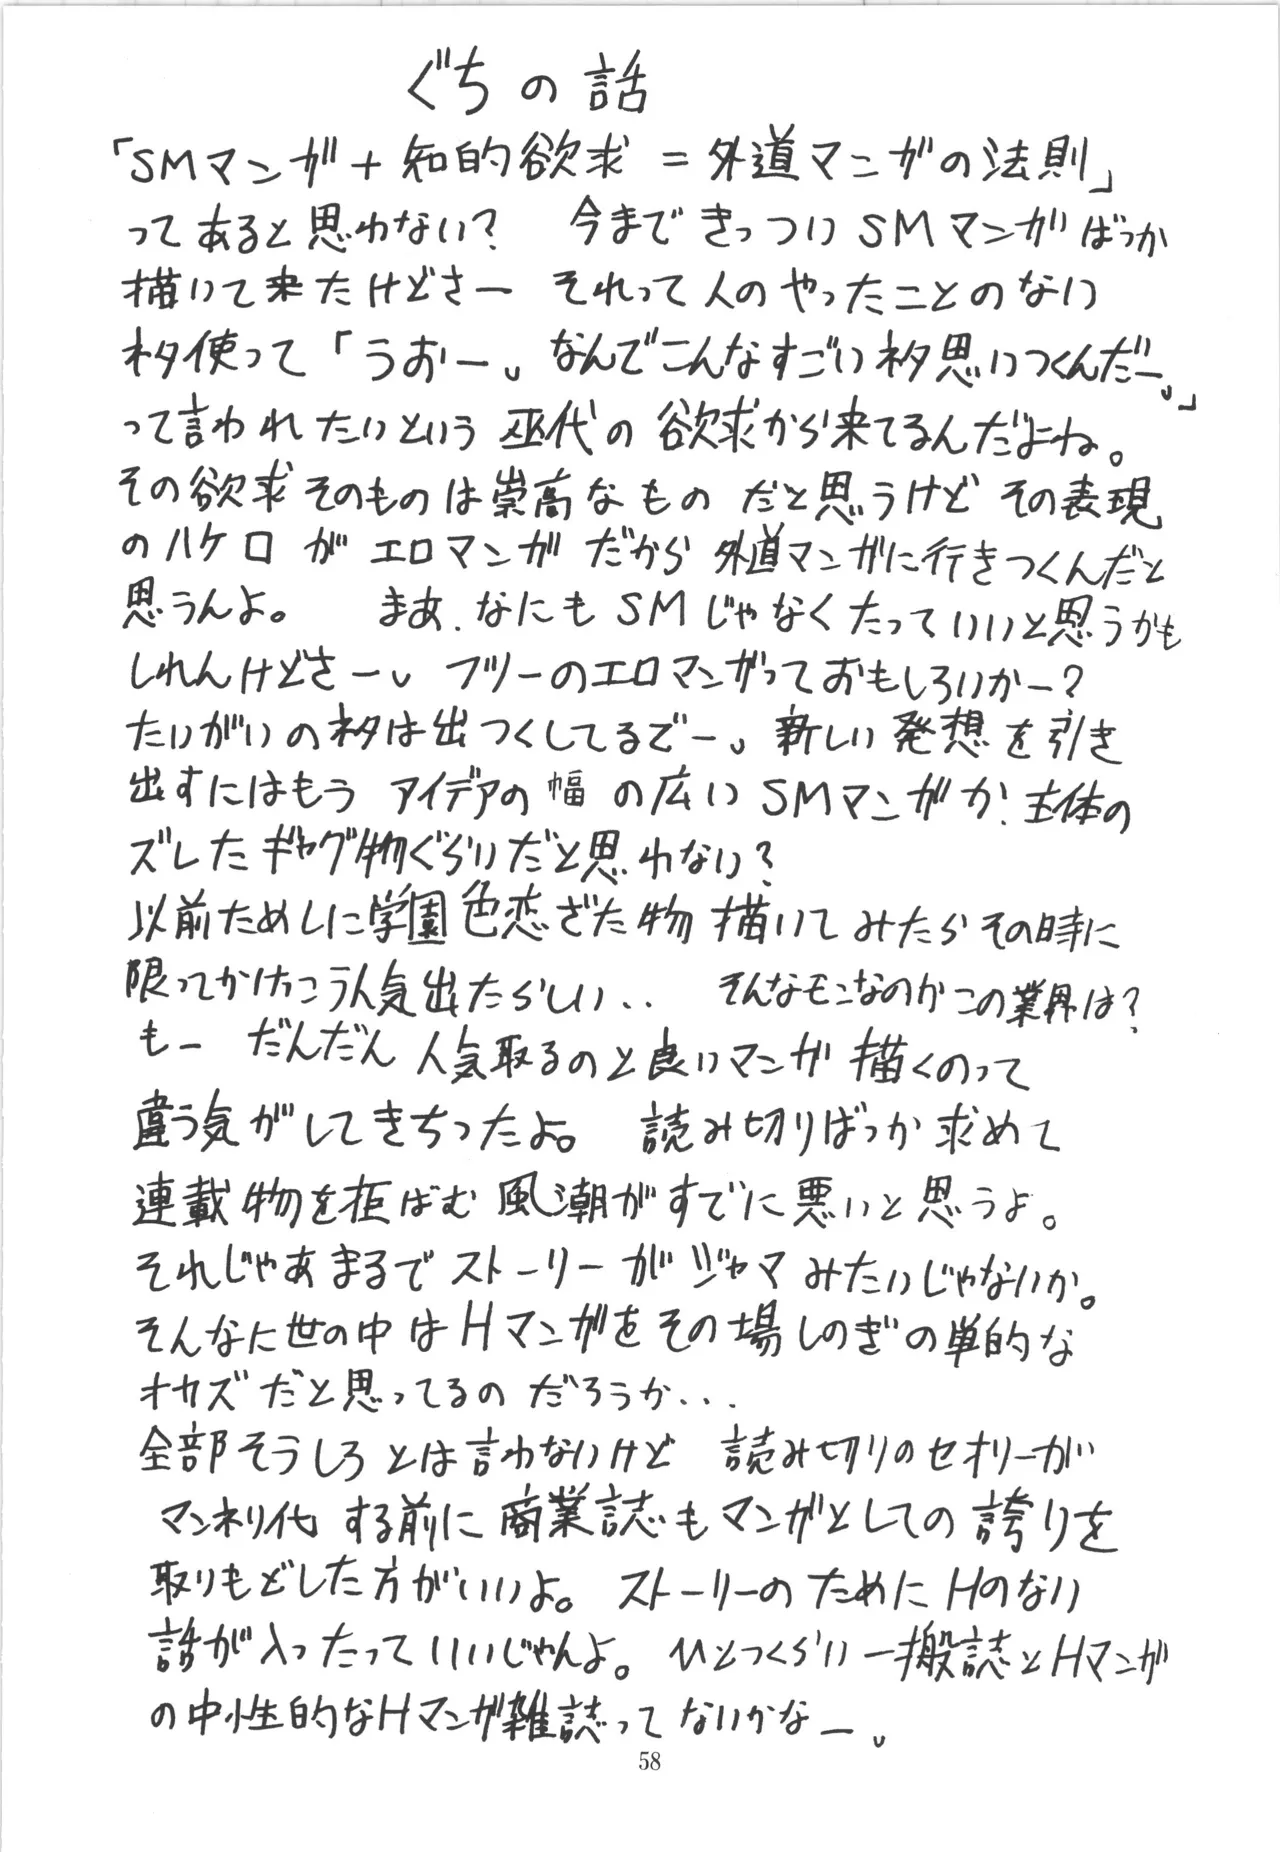 ぐちの話
「SMマンガ+知的欲求=外道マンガの法則」
ってあると思わない? 今まできっついSMマンガばっか
描いて来たけどさー それって人のやったことのない
ネタ使って「うおー、なんでこんなすごいネタ思いつくんだー。」
って言われたいという 巫代の欲求から来てるんだよね。
その欲求そのものは崇高なもの だと思うけど その表現
のハケ口がエロマンガだから外道マンガに行きつくんだと
思うんよ。 まあ、なにもSMじゃなくたっていいと思うかも
しれんけどさー、フツーのエロマンガっておもしろいかー?
たいがいのネタは出つくしてるでー、新しい発想を引き
出すにはもう アイデアの 幅 の広いSMマンガか、主体の
ズレたギャグ物ぐらいだと思わない?
以前ためしに学園色恋ざた物描いてみたらその時に
限ってかけっこう人気出たらしい‥ そんなモンなのかこの業界は?
もー だんだん人気取るのと良いマンガ描くのって
違う気がしてきちったよ。 読み切りばっか求めて
連載物を拒ばむ風潮がすでに悪いと思うよ。
それじゃあまるでストーリーがジャマみたいじゃないか。
そんなに世の中はHマンガをその場しのぎの単的な
オカズだと思ってるのだろうか...
全部そうしろとは言わないけど 読み切りのセオリーが
マンネリ代する前に商業誌もマンガとしての誇りを
取りもどした方がいいよ。ストーリーのためにHのない
話が入ったっていいじゃんよ。ひとつくらい一搬誌とHマンガ
の中性的なHマンガ雑誌ってないかなー。
58